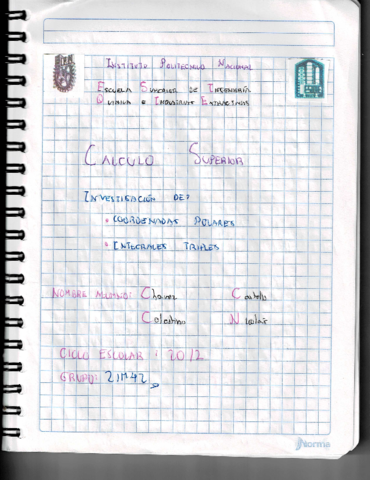 Instituto Politecnico Nacional
Escuela Superior de Ingeniería
Química e Industrias Extractivas
Calculo Superior
Investigación de:
• Coordenadas Polares
• Integrales Triples
Nombre Alumno: Chavez
Ciclo Escolar: 2012
Grupo: 2IM42
Norma